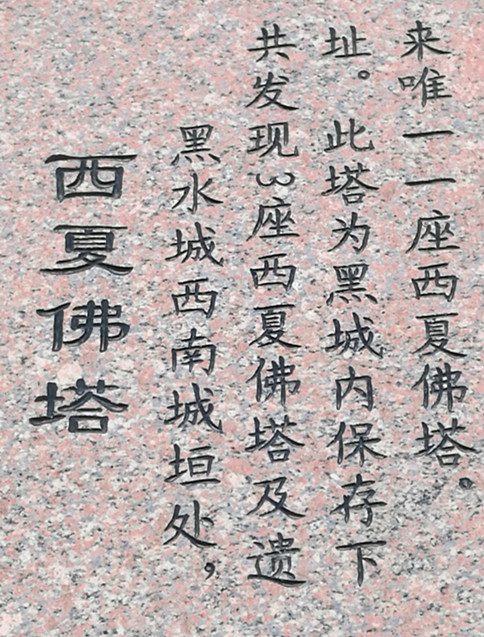 西夏佛塔
黑水城西南城垣处，
共发现3座西夏佛塔及遗
址。此塔为黑城内保存下
来唯一一座西夏佛塔。